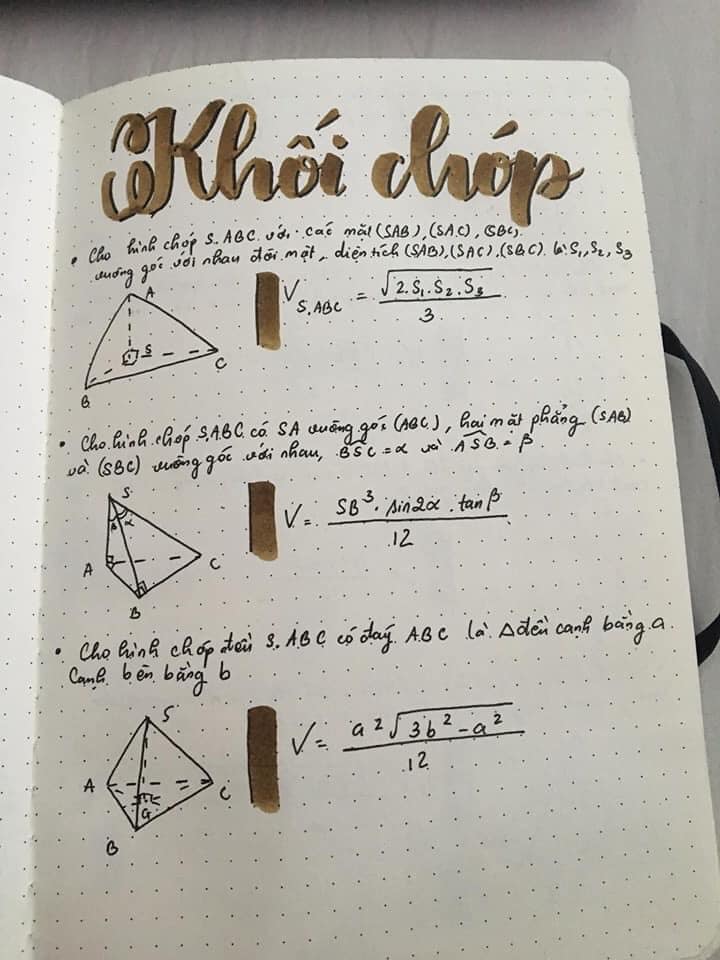 Khối chóp
• Cho hình chóp S.ABC với các mặt (SAB), (SAC), (SBC)
vuông góc với nhau đôi một, diện tích (SAB), (SAC), (SBC) là S₁, S₂, S₃
A
S
C
B
V_{S.ABC} = \frac{\sqrt{2.S₁.S₂.S₃}}{3}
• Cho hình chóp S.ABC có SA vuông góc (ABC), hai mặt phẳng (SAB)
và (SBC) vuông góc với nhau, \widehat{BSC} = α và \widehat{ASB} = β
S
β α
A
C
B
V = \frac{SB³.sin2α.tanβ}{12}
• Cho hình chóp đều S.ABC có đáy ABC là Δ đều cạnh bằng a.
Cạnh bên bằng b
S
A
C
G
B
V = \frac{a²\sqrt{3b²-a²}}{12}